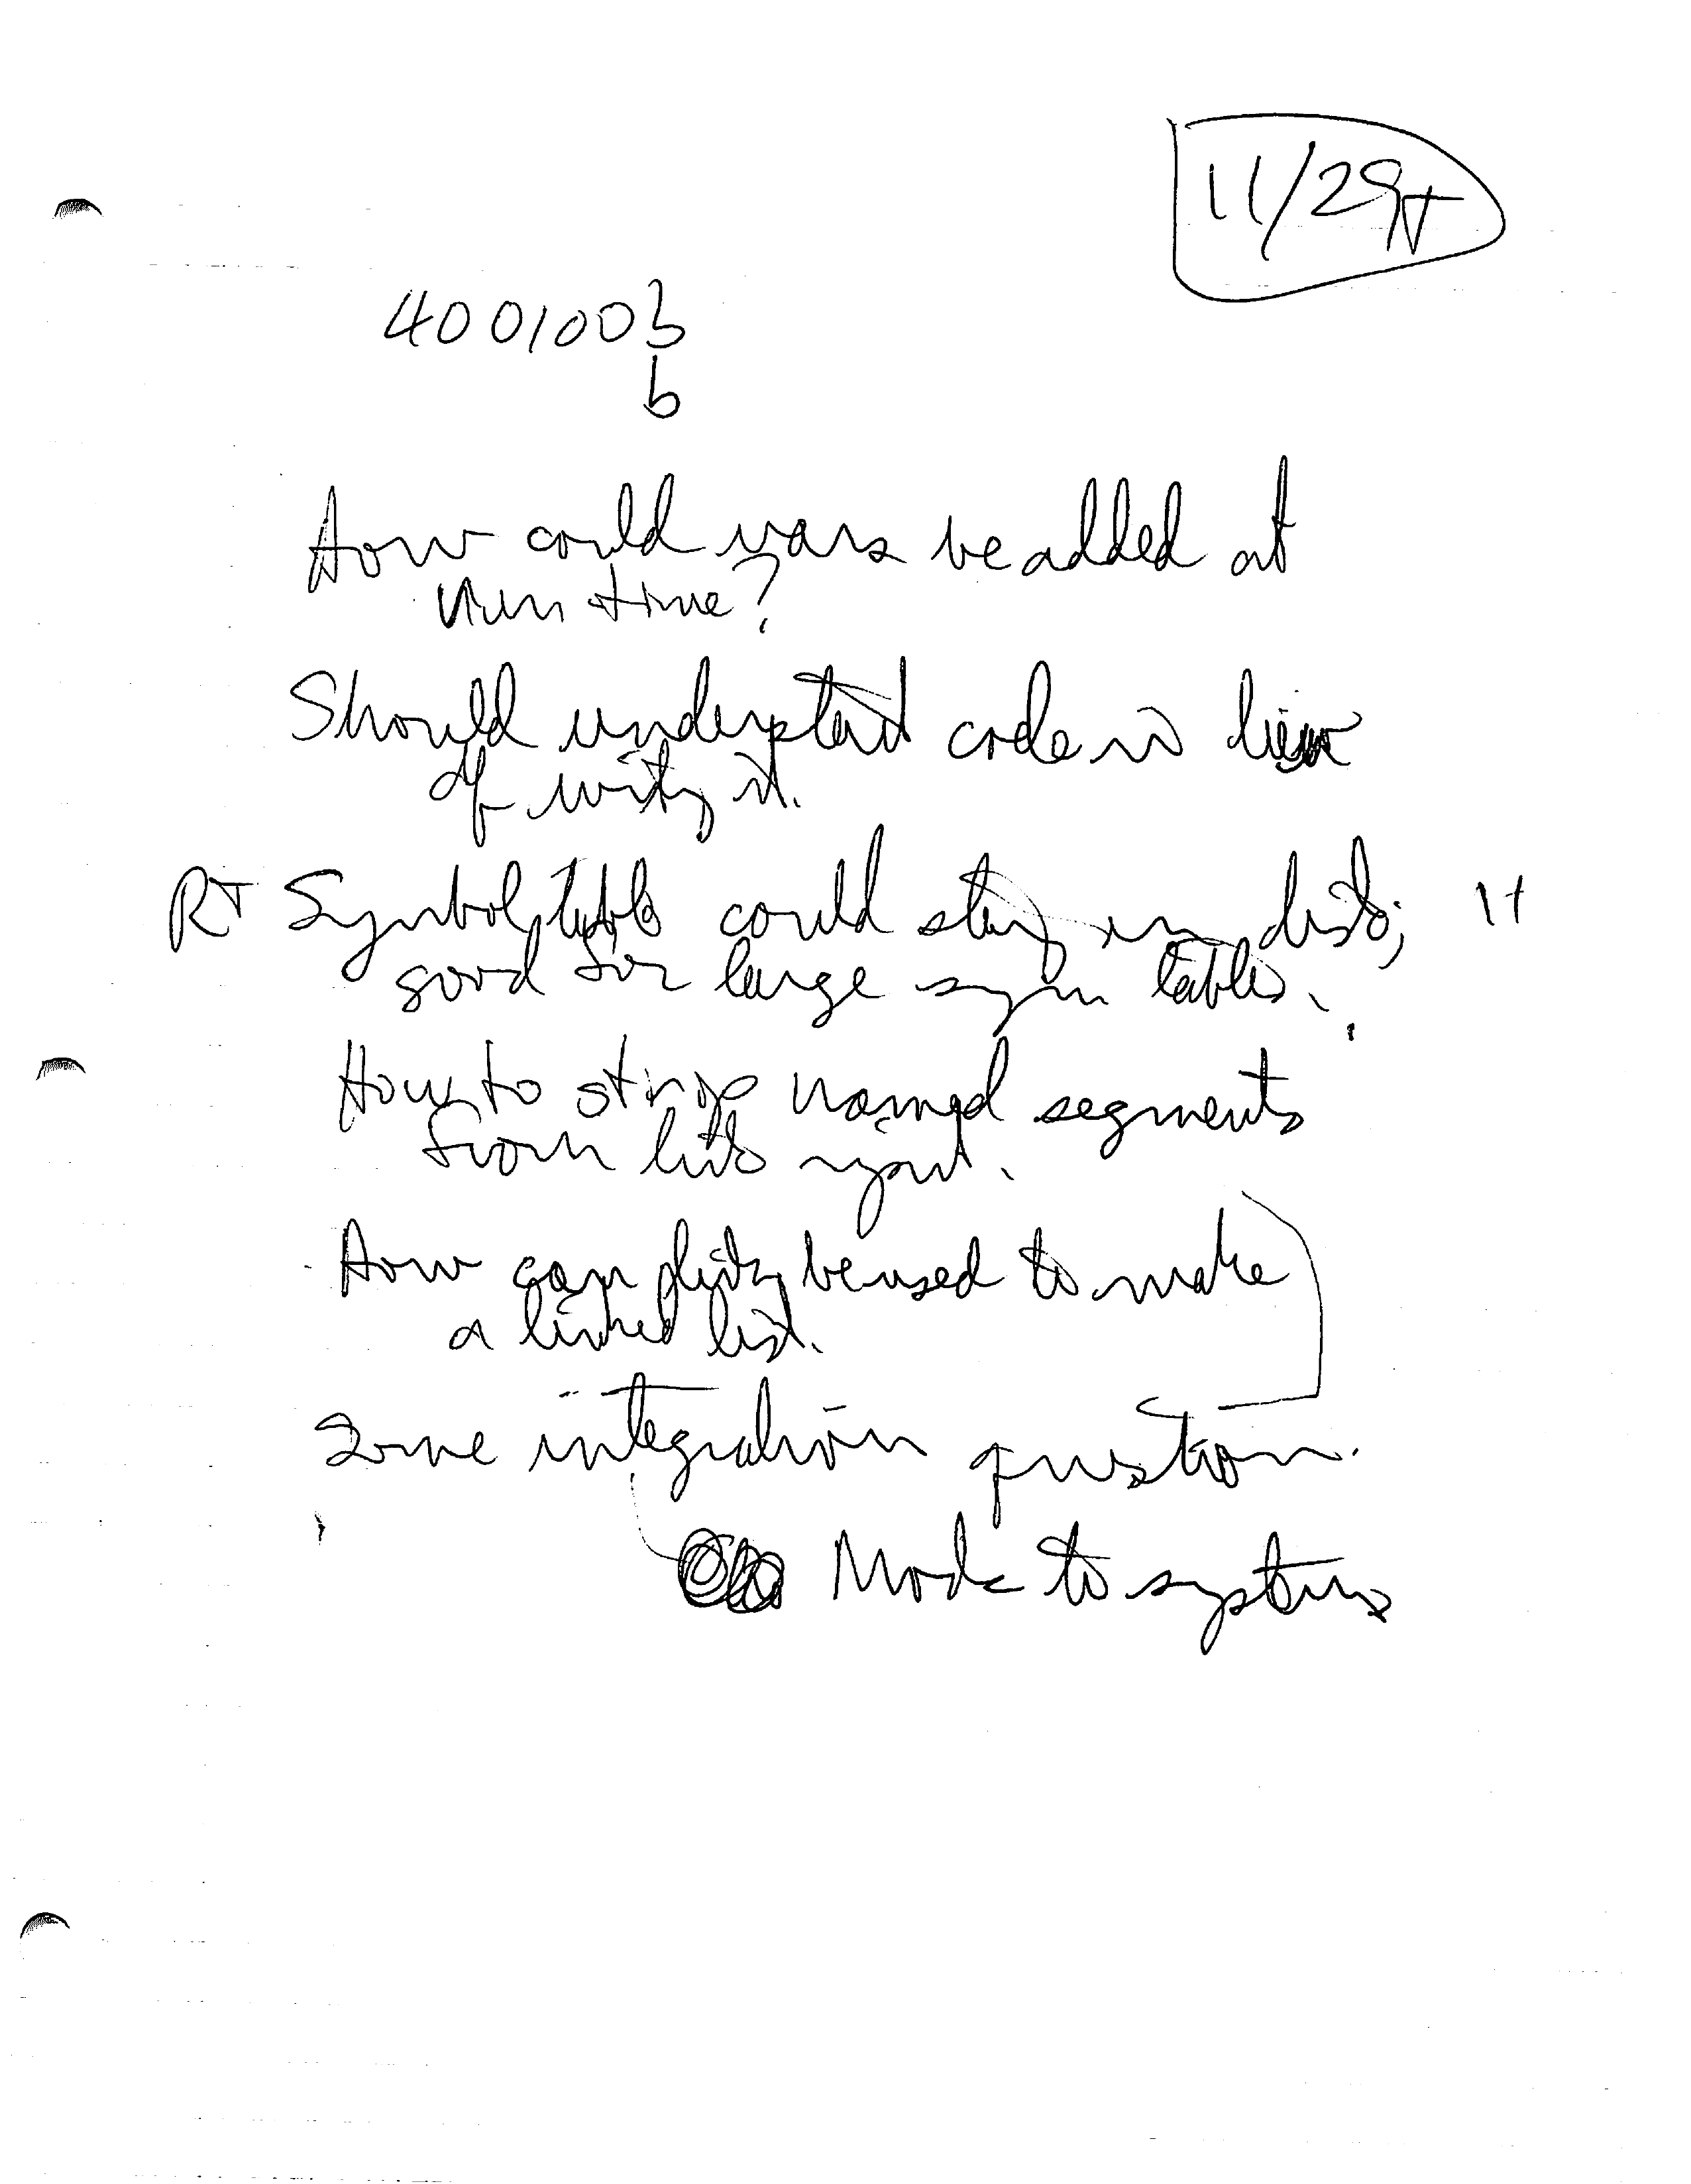 11/29
400100
b
How could vars be added at
run time?
Should understand code in lieu
of writing it.
RT Symbol table could stay on disk; it
good for large sym tables.
How to strip named segments
from link input.
How can be used to make
a linked list.
Some integration question.
Mods to systems